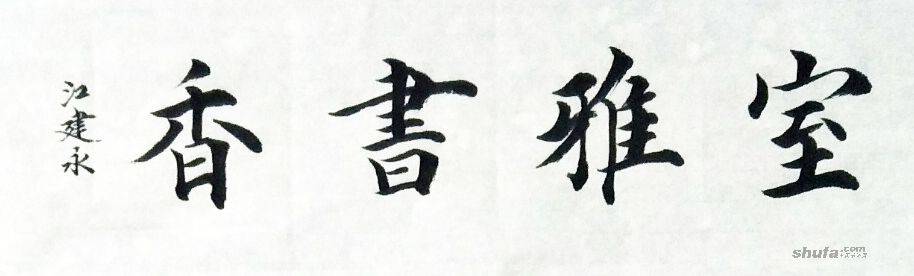 室雅書香
江建永
shufa.com